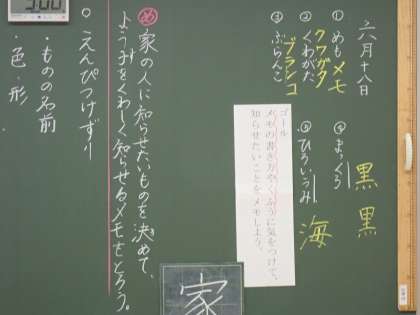 六月十八日
① めも メモ
② くわがた クワガタ
③ ぶらんこ ブランコ
④ まっくろ 黒 黒
⑤ ひろいうみ 海
ゴール
メモの書き方やくふうに気をつけて、
知らせたいことをメモしよう。
家
め 家の人に知らせたいものを決めて、
ようすをくわしく知らせるメモをとろう。
○ えんぴつけずり
・ものの名前
・色・形